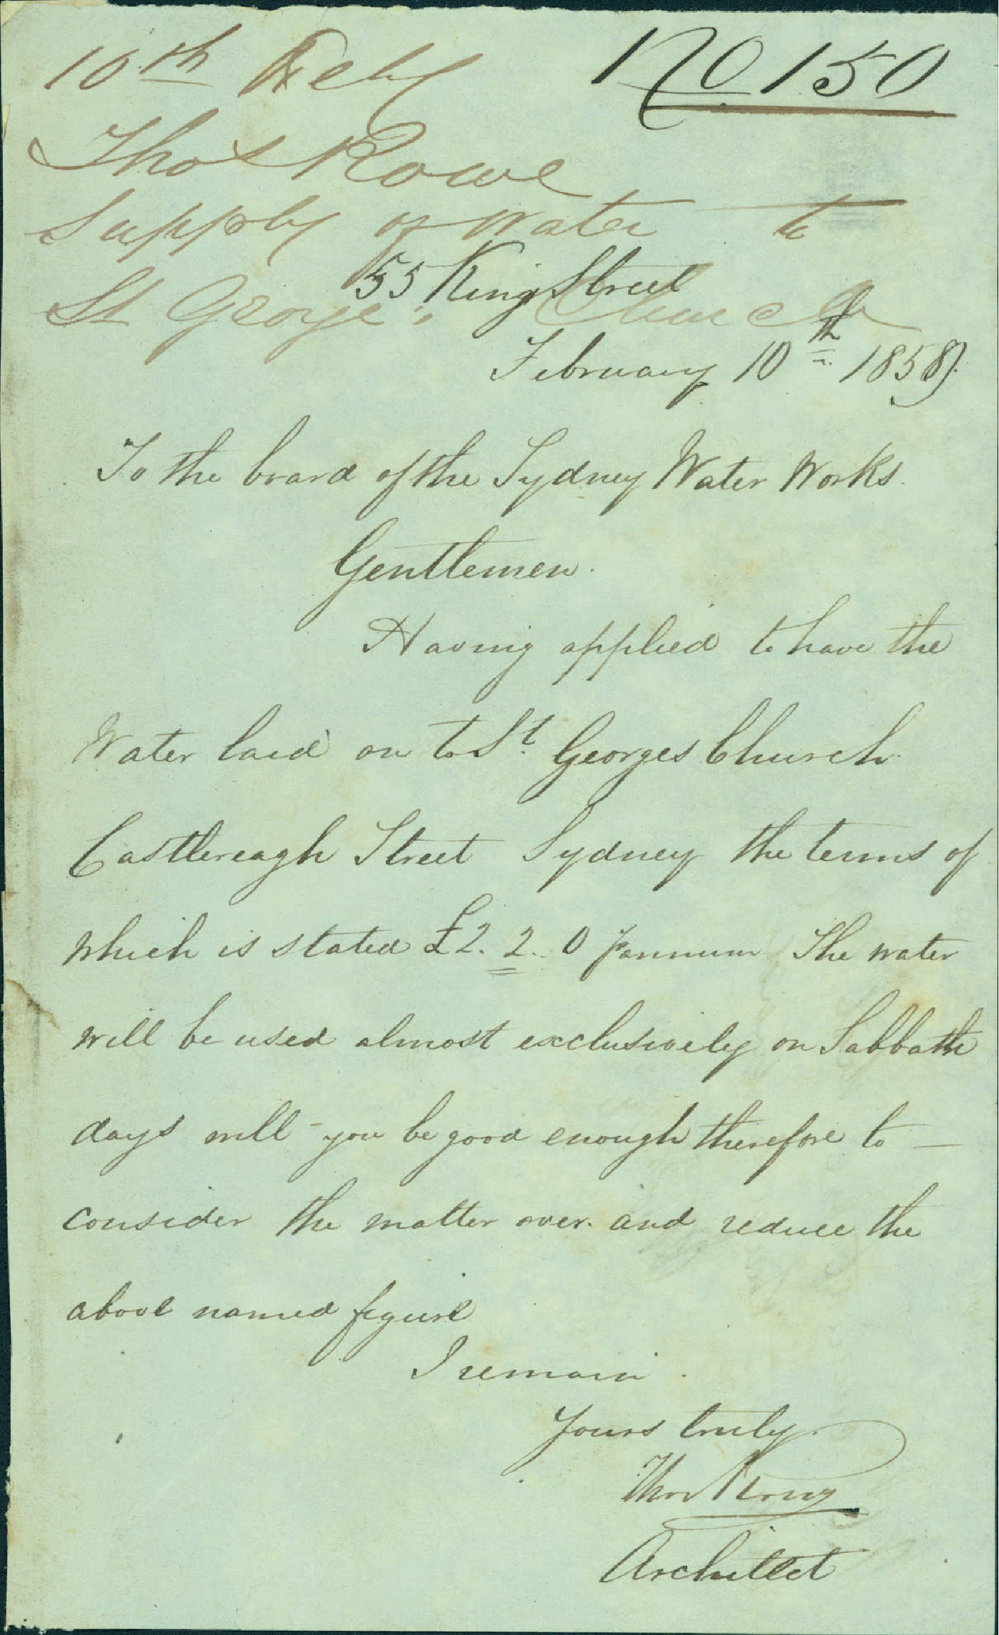 10th Feby No 150
Thos Rowe
Supply of Water to
St George's Church
55 King Street
February 10th 1858
To the board of the Sydney Water Works.
Gentlemen.
Having applied to have the
Water laid on to St. Georges Church
Castlereagh Street Sydney the terms of
which is stated £2. 2. 0 annum The water
will be used almost exclusively on Sabbath
days will you be good enough therefore to
consider the matter over and reduce the
above named figure
I remain
Yours truly
Thos Rowe
Architect